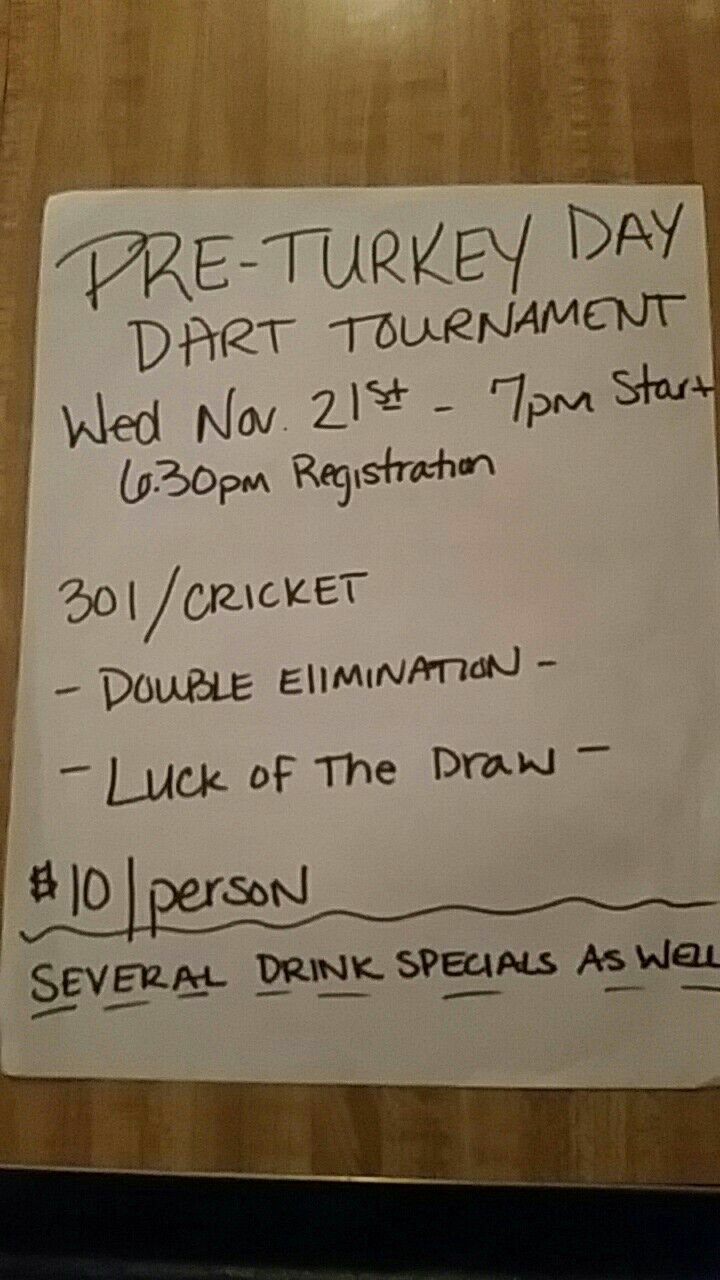 PRE-TURKEY DAY
DART TOURNAMENT
Wed Nov. 21st - 7pm Start
6:30pm Registration
301/CRICKET
- DOUBLE ElIMINATION -
- Luck of The Draw -
$10/person
SEVERAL DRINK SPECIALS AS WELL